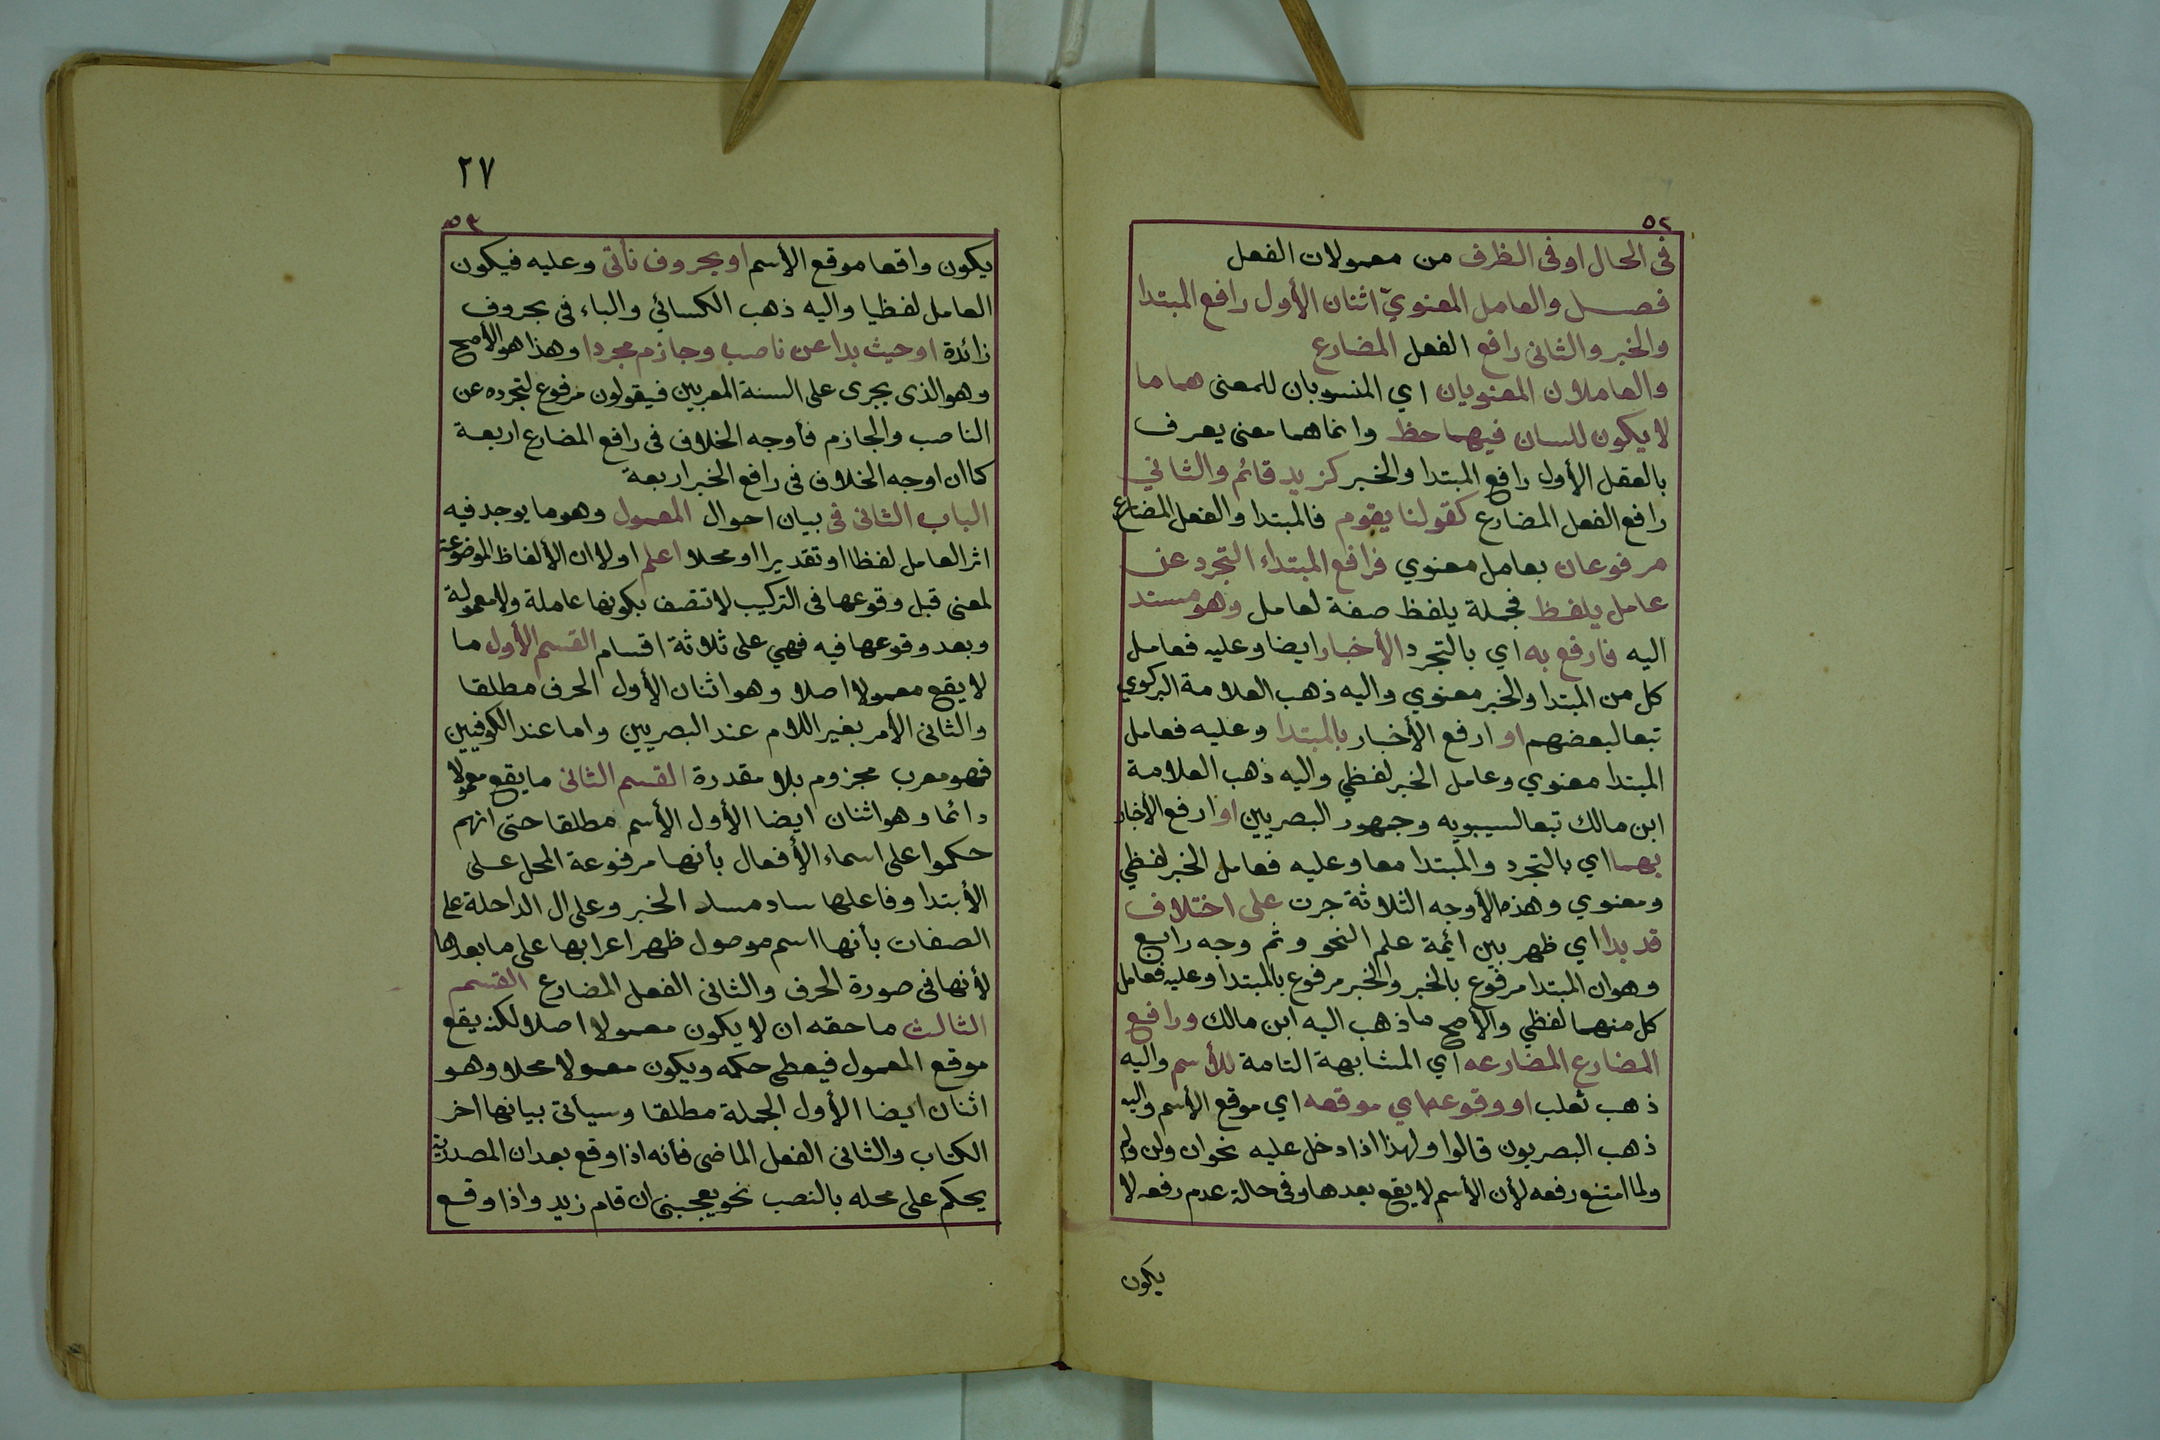 ٥٢
في الحال او في الظرف من معمولات الفعل
فصـــل والعامل المعنويّ اثنان الأول رافع المبتدا
والخبر والثاني رافع الفعل المضارع
والعاملان المعنويان اي المنسوبان للمعنى هما ما
لا يكون للسان فيهما حظ وانما هما معنى يعرف
بالعقل الأول رافع المبتدا والخبر كزيد قائم والثاني
رافع الفعل المضارع كقولنا يقوم فالمبتدا والفعل المضارع
مرفوعان بعامل معنوي فرافع المبتداء التجرد عن
عامل يلفظ فجملة يلفظ صفة لعامل وهو مسند
اليه فارفع به اي بالتجرد الأخبار ايضا وعليه فعامل
كل من المبتدا والخبر معنوي واليه ذهب العلامة البركوي
تبعا لبعضهم او ارفع الأخبار بالمبتدا وعليه فعامل
المبتدا معنوي وعامل الخبر لفظي واليه ذهب العلامة
ابن مالك تبعا لسيبويه وجمهور البصريين او ارفع الأخبار
بهما اي بالتجرد والمبتدا معا وعليه فعامل الخبر لفظي
ومعنوي وهذه الأوجه الثلاثة جرت على اختلاف
قد بدا اي ظهر بين ائمة علم النحو وثم وجه رابع
وهو ان المبتدا مرفوع بالخبر والخبر مرفوع بالمبتدا وعليه فعامل
كل منهما لفظي والأصح ما ذهب اليه ابن مالك ورافع
المضارع المضارعه اي المشابهة التامة للأسم واليه
ذهب ثعلب او وقوعه اي موقعه اي موقع الأسم واليه
ذهب البصريون قالوا ولهذا اذا دخل عليه نحو ان ولن ولم
ولما امتنع رفعه لأن الأسم لا يقع بعدها وفي حالة عدم رفعه لا
يكون
٢٧
٥٣
يكون واقعا موقع الأسم او بحروف نأتي وعليه فيكون
العامل لفظيا واليه ذهب الكسائي والباء في بحروف
زائدة او حيث بدا عن ناصب وجازم مجردا وهذا هو الأصح
وهو الذي يجرى على السنة المعربين فيقولون مرفوع لتجرده عن
الناصب والجازم فأوجه الخلاف في رافع المضارع اربعة
كما ان اوجه الخلاف في رافع الخبر اربعة
الباب الثاني في بيان احوال المعمول وهو ما يوجد فيه
اثر العامل لفظا او تقديرا او محلا اعلم اولا ان الألفاظ الموضوعة
لمعنى قبل وقوعها في التركيب لا تتصف بكونها عاملة ولا معمولة
وبعد وقوعها فيه فهي على ثلاثة اقسام القسم الأول ما
لا يقع معمولا اصلا وهو اثنان الأول الحرف مطلقا
والثاني الأمر بغير اللام عند البصريين واما عند الكوفيين
فهو معرب مجزوم بلام مقدرة القسم الثاني ما يقع معمولا
دائما وهو اثنان ايضا الأول الأسم مطلقا حتى انهم
حكموا على اسماء الأفعال بأنها مرفوعة المحل على
الأبتدا وفاعلها ساد مسد الخبر وعلى ال الداخلة على
الصفات بأنها اسم موصول ظهر اعرابها على ما بعدها
لأنها في صورة الحرف والثاني الفعل المضارع القسم
الثالث ما حقه ان لا يكون معمولا اصلا لكنه يقع
موقع المعمول فيعطى حكمه ويكون معمولا محلا وهو
اثنان ايضا الأول الجملة مطلقا وسيأتي بيانها اخر
الكتاب والثاني الفعل الماضي فأنه اذا وقع بعد ان المصدرية
يحكم على محله بالنصب نحو يعجبني ان قام زيد واذا وقع